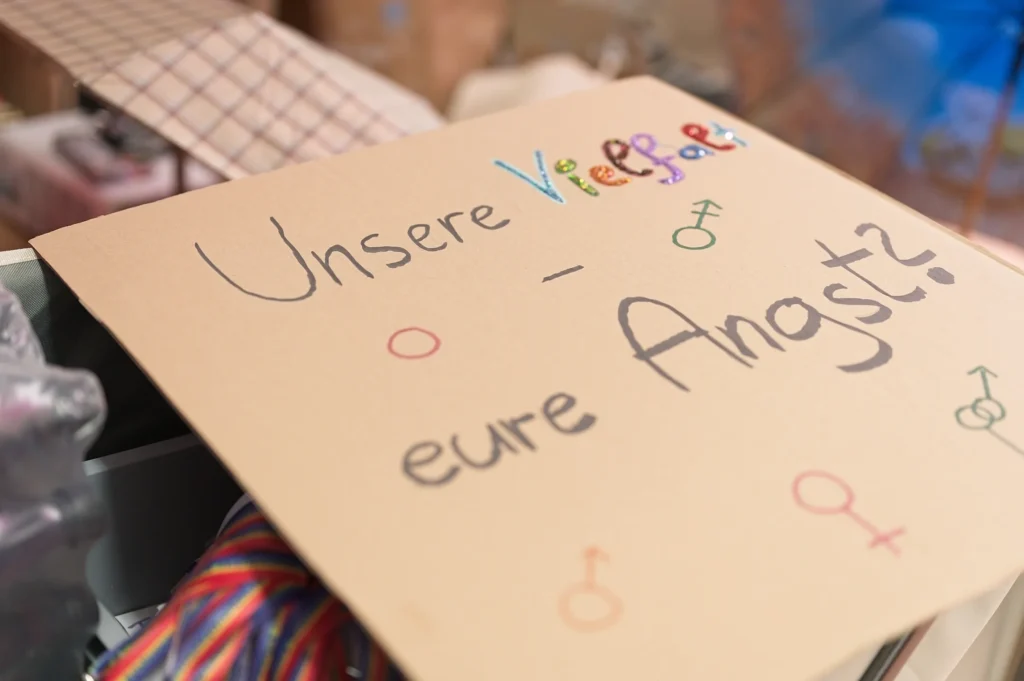 Unsere Vielfalt
–
eure Angst?